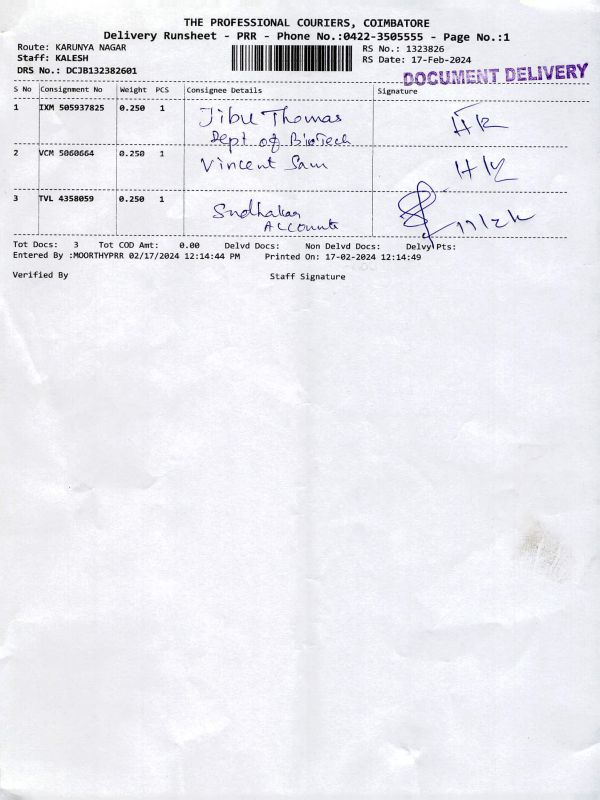 THE PROFESSIONAL COURIERS, COIMBATORE
Delivery Runsheet - PRR - Phone No.:0422-3505555 - Page No.:1
Route: KARUNYA NAGAR RS No.: 1323826
Staff: KALESH RS Date: 17-Feb-2024
DRS No.: DCJB132382601 DOCUMENT DELIVERY
S No Consignment No Weight PCS Consignee Details Signature
1 IXM 505937825 0.250 1 Jibu Thomas
Dept of BioTech
2 VCM 5060664 0.250 1 Vincent Sam
3 TVL 4358059 0.250 1 Sudhakar
Accounts
Tot Docs: 3 Tot COD Amt: 0.00 Delvd Docs: Non Delvd Docs: Delvy Pts:
Entered By :MOORTHYPRR 02/17/2024 12:14:44 PM Printed On: 17-02-2024 12:14:49
Verified By Staff Signature